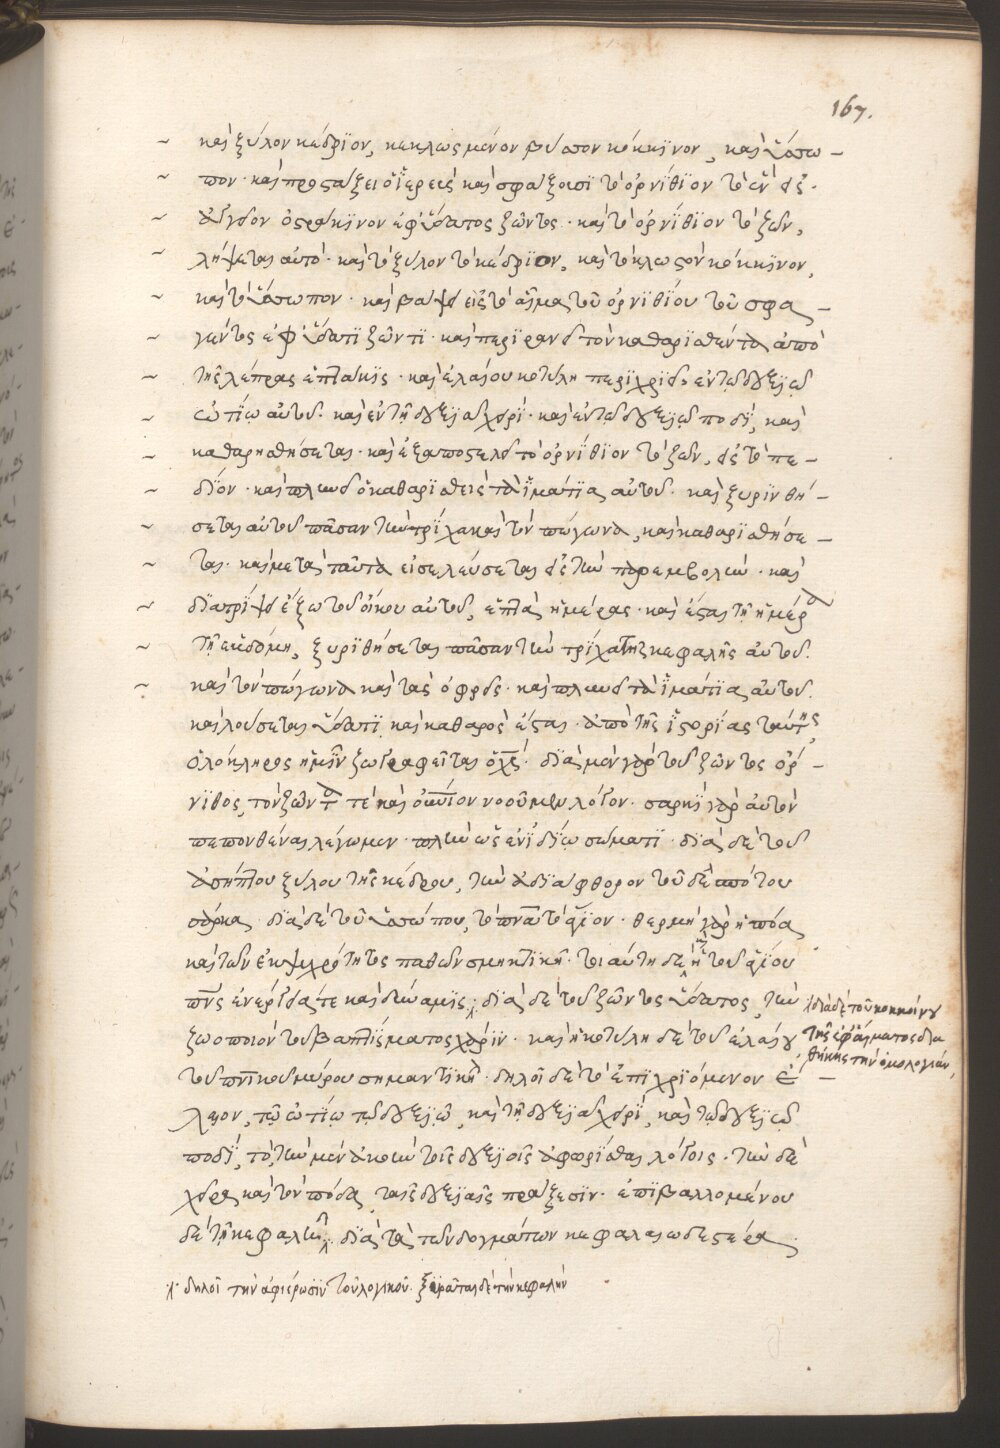 167.
καὶ ξύλον κέδρϊον, κεκλωσμένον βύσσον κόκκϊνον, καὶ ὕσσω –
πον· καὶ προστάξει ὁ ἱερεὺς καὶ σφάξουσϊ τὸ ὀρνίθϊον τὸ ἓν εἰς
ἀγγεῖον ὀστράκϊνον ἐφ' ὕδατος ζῶντος· καὶ τὸ ὀρνίθϊον τὸ ζῶν,
λήψεται αὐτό· καὶ τὸ ξύλον τὸ κέδρϊον, καὶ τὸ κλωστὸν κόκκϊνον,
καὶ τὸ ὕσσωπον· καὶ βάψει εἰς τὸ αἷμα τοῦ ὀρνϊθίου τοῦ σφα –
γέντος ἐφ' ὕδατϊ ζῶντϊ· καὶ περϊρανεῖ τὸν καθαρϊσθέντα ἀπὸ
τῆς λέπρας ἑπτάκϊς· καὶ ἐλαίου κοτύλη περϊχρίσει ἐν τῷ δεξϊῷ
ὠτίῳ αὐτοῦ· καὶ ἐν τῇ δεξϊᾷ χειρί· καὶ ἐν τῷ δεξϊῷ ποδϊ, καὶ
καθαρισθήσεται· καὶ ἐξαποστελεῖ τὸ ὀρνίθϊον τὸ ζῶν, εἰς τὸ πε –
δίον· καὶ πλυνεῖ ὁ καθαρϊσθεὶς τὰ ἱμάτϊα αὐτοῦ· καὶ ξυρϊνθή –
σεται αὐτοῦ πᾶσαν τὴν τρίχα καὶ τὸν πώγωνα, καὶ καθαρϊσθήσε –
ται· καὶ μετὰ ταῦτα εἰσελεύσεται εἰς τὴν παρεμβολήν· καὶ
δϊατρίψει ἔξω τοῦ οἴκου αὐτοῦ, ἑπτὰ ἡμέρας· καὶ ἔσται τῇ ἡμέρᾳ
τῇ ἑβδόμῃ, ξυρϊθήσεται πᾶσαν τὴν τρίχα τῆς κεφαλῆς αὐτοῦ.
καὶ τὸν πώγωνα καὶ τὰς ὀφρῦς· καὶ πλυνεῖ τὰ ἱμάτϊα αὐτοῦ.
καὶ λούσεται ὕδατϊ καὶ καθαρὸς ἔσται· ἀπὸ τῆς ἱστορίας ταύτης,
ὁλόκληρος ἡμῖν ζωγραφεῖται ὁ χς· δϊὰ μὲν γὰρ τοῦ ζῶντος ὀρ –
νϊθος, τὸν ζῶντα τὲ καὶ οὐνϊον νοοῦμεν λόγον· σαρκὶ γὰρ αὐτὸν
πεπονθέναι λέγωμεν· πλὴν ὡς ἐν ἰδίῳ σώματϊ· δϊὰ δὲ τοῦ
ἀσήπτου ξύλου τῆς κέδρου, τὴν ἀδϊάφθορον τοῦ δεσπότου
σάρκα· δϊὰ δὲ τοῦ ὑσσώπου, τὸ πνα τὸ ἅγϊον· θερμὴ γὰρ ἡ πόα
καὶ τῶν ἐκ ψυχρότητος παθῶν σμηκτϊκή· τοιαύτη δὲ ἡ τοῦ ἁγίου
πνς ἐνέργειά τε καὶ δύναμϊς· δϊὰ δὲ τοῦ ζῶντος ὕδατος, τὴν
ζωοποιὸν τοῦ βαπτίσματος χάρϊν· καὶ ἡ κοτύλη δὲ τοῦ ἐλαίου
τοῦ πνϊκοῦ μύρου σημαντϊκή· δηλοῖ δὲ τὸ ἐπϊχρϊόμενον ἔ –
λαιον, τῷ ὠτίῳ τῷ δεξϊῷ, καὶ τῇ δεξϊᾷ χειρί, καὶ τῷ δεξϊῷ
ποδϊ, τὸ, τὴν μὲν ἀκοὴν τοῖς δεξϊοῖς ἀφωρίσθαι λόγοις· τὴν δὲ
χεῖρα καὶ τὸν πόδα, ταῖς δεξϊαῖς πράξεσϊν· ἐπϊβαλλομένου
δὲ τῇ κεφαλῇ, δϊὰ τὰ τῶν δογμάτων κεφαλαιωδέστερα.
δϊὰ δὲ τοῦ κοκκίνου
τῆς ἐφ' αἵματος δια
θήκης τὴν ὁμολογίαν,
δηλοῖ τὴν ἀφιέρωσϊν τοῦ λογικοῦ. ξυρᾶται δὲ τὴν κεφαλὴν